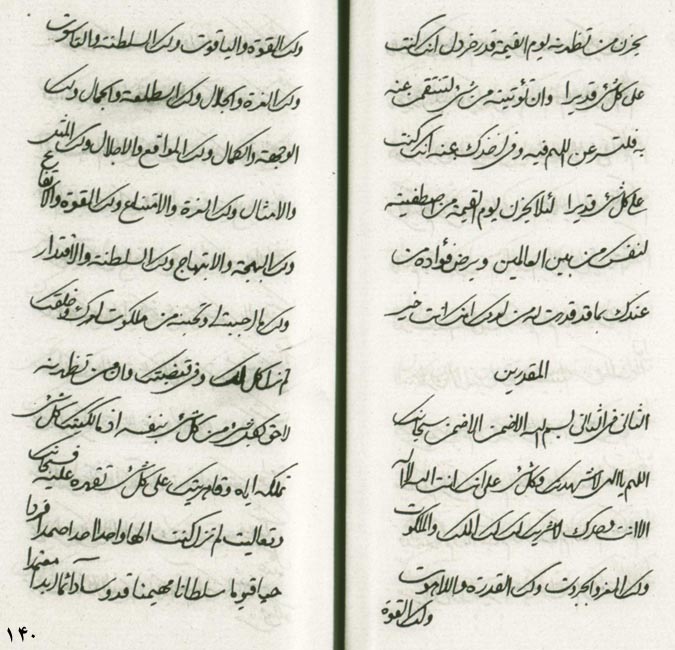 يحزن من تظهرنه يوم القيمة قدر خردل انك كنت
على كلشئ قديرا وان تؤتينه من شئ لتنتقمن عنه
به فلتسرعن اللهم فيه وفى اخذك عنه انك كنت
على كلشئ قديرا لئلا يحزن يوم القيمة من اصطفيته
لنفسك من بين العالمين ويرض فؤاده من
عندك بما قد قدرت له من لدنك انك انت خير
المقدرين
الثانى فى الثانى بسم الله الاضمن الاضمن سبحانك
اللهم يا الهى لاشهدنك وكلشئ على انك انت الله لا اله
الا انت وحدك لا شريك لك لك الملك والملكوت
ولك العز والجبروت ولك القدرة واللاهوت
ولك القوة
ولك القوة والياقوت ولك السلطنة والناسوت
ولك العزة والجلال ولك الطلعة والجمال ولك
الوجهة والكمال ولك المواقع والاجلال ولك المثل
والامثال ولك العزة والامتناع ولك القوة والارتفاع
ولك البهجة والابتهاج ولك السلطنة والاقتدار
ولك ما احببته او تحبنه من ملكوت امرك وخلقك
لم تزل كل لك وفى قبضتك وان من تظهرنه
لاحق شئ من كل شئ بنفسه اذ مالكيتك كلشئ
تملكه اياه وقاهريتك على كلشئ تقهره عليه فسبحانك
وتعاليت لم تزل كنت الها واحدا احدا صمدا فردا
حيا قيوما سلطانا مهيمنا قدوسا دائما ابدا معتمدا
١۴٠